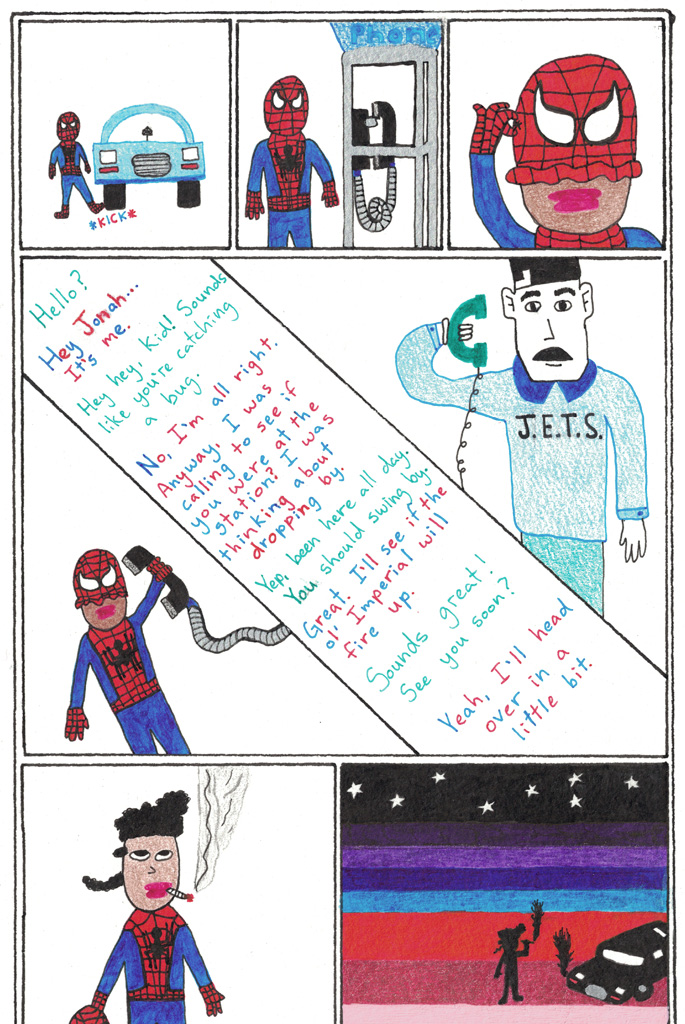 *KICK*
Phone
Hello?
Hey Jonah...
It's me.
Hey hey, Kid! Sounds
like you're catching
a bug.
No, I'm all right.
Anyway, I was
calling to see if
you were at the
station? I was
thinking about
dropping by.
Yep, been here all day.
You should swing by.
Great. I'll see if the
ol' Imperial will
fire up.
Sounds great!
See you soon?
Yeah, I'll head
over in a
little bit.
J.E.T.S.